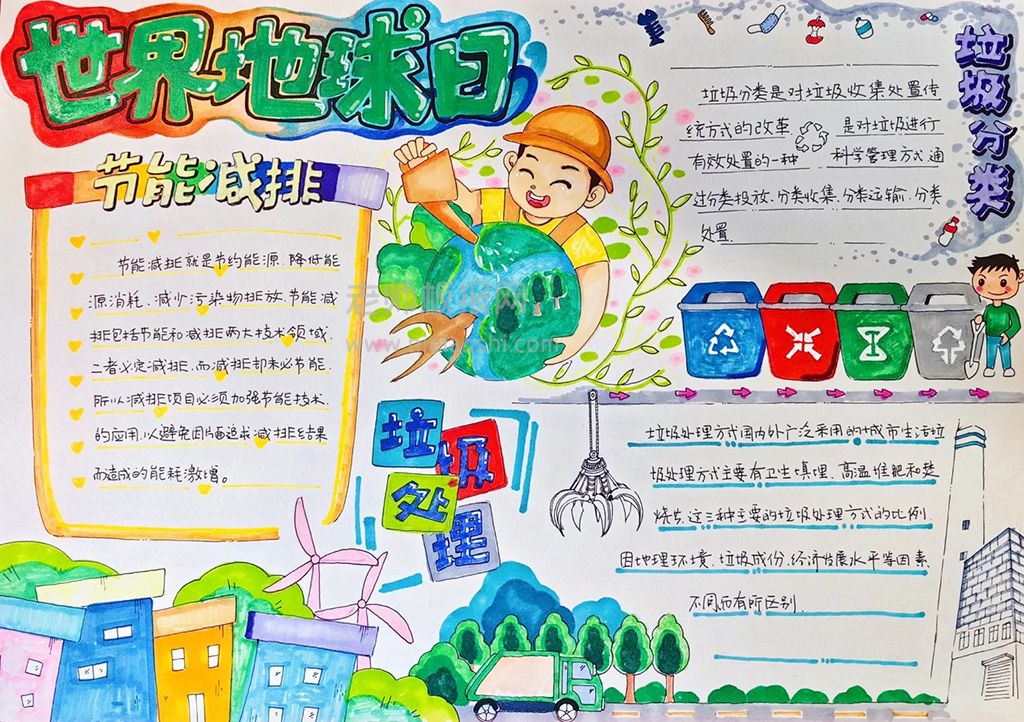 世界地球日
节能减排
节能减排就是节约能源、降低能
源消耗、减少污染物排放.节能减
排包括节能和减排两大技术领域,
二者必定减排,而减排却未必节能,
所以减排项目必须加强节能技术
的应用,以避免因片面追求减排结果
而造成的能耗激增。
垃圾分类
垃圾分类是对垃圾收集处置传
统方式的改革 是对垃圾进行
有效处置的一种 科学管理方式通
过分类投放、分类收集、分类运输、分类
处置
垃圾处理
垃圾处理方式国内外广泛采用的城市生活垃
圾处理方式主要有卫生填埋、高温堆肥和焚
烧右这三种主要的垃圾处理方式的比例
因地理环境、垃圾成份、经济发展水平等因素
不同而有所区别
老师板报网